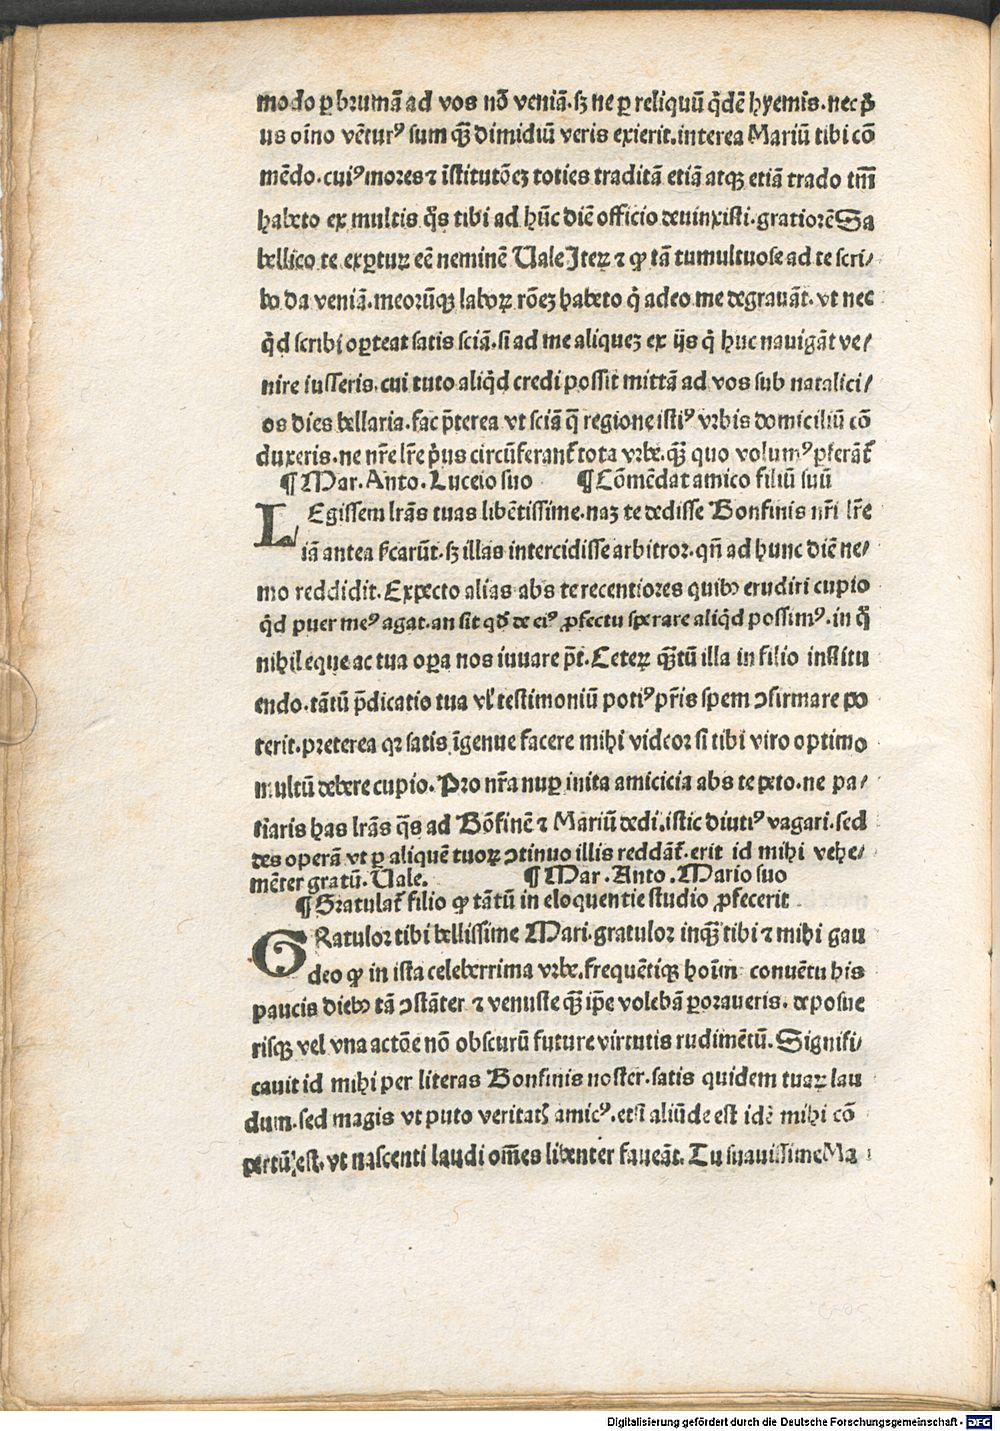 modo ꝑ brumā ad vos nō veniā. sꝫ ne ꝑ reliquū q̇dē hyemis. nec p̄
us oīno vētur⁹ sum qꝫ̄ dimidiū veris exierit. interea Mariū tibi cō
mēdo. cui⁹ mores ⁊ īstitutōeꝫ toties traditā etiā atqꝫ etiā trado tm̄
habeto ex multis q̄s tibi ad hūc diē officio deuinxisti. gratiorē Sa
bellico te exꝑtuꝝ eē neminē Uale Iteꝝ ⁊ ꝙ tā tumultuose ad te scri/
bo da veniā. meorūqꝫ laboꝝ rōeꝫ habeto q̇ adeo me degrauāt. vt nec
q̇d scribi oꝑteat satis sciā. si ad me aliqueꝫ ex ijs q̇ huc nauigāt ve/
nire iusseris. cui tuto aliq̇d credi possit mittā ad vos sub natalici/
os dies bellaria. fac p̄terea vt sciā q̄ regione isti⁹ vrbis domiciliū cō
duxeris. ne nr̄e lr̄e ṗus circūferant᷑ tota vrbe. qꝫ̄ quo volum⁹ ꝑferāt᷑
¶ Mar. Anto. Luceio suo ¶ Cōmēdat amico filiū suū
LEgissem lr̄as tuas libētissime. naꝫ te dedisse Bonfinis nr̄i lr̄e
iā antea f̄carūt. sꝫ illas intercidisse arbitror. qn̄ ad hunc diē ne/
mo reddidit. Expecto alias abs te recentiores quibꝰ erudiri cupio
q̇d puer me⁹ agat. an sit qd̄ de ei⁹ ꝓfectu sperare aliq̇d possim⁹. in q̄
nihil eque ac tua oꝑa nos iuuare p̄t. Ceteꝝ qꝫ̄tū illa in filio institu
endo. tātū p̄dicatio tua vl̕ testimoniū poti⁹ pr̄is spem ꝯfirmare po
terit. preterea qꝛ satis īgenue facere mihi videor si tibi viro optimo
multū debere cupio. Pro nr̄a nuꝑ inita amicicia abs te peto. ne pa/
tiaris has lr̄as q̄s ad Bōfinē ⁊ Mariū dedi. istic diuti⁹ vagari. sed
des operā vt ꝑ aliquē tuoꝝ ꝯtinuo illis reddāt᷑. erit id mihi vehe/
mēter gratū. Uale. ¶ Mar. Anto. Mario suo
¶ Gratulat᷑ filio ꝙ tātū in eloquentie studio ꝓfecerit
GRatulor tibi bellissime Mari. gratulor inqꝫ̄ tibi ⁊ mihi gau
deo ꝙ in ista celeberrima vrbe. frequētiqꝫ hoīm conuētu his
paucis diebꝰ tā ꝯstāter ⁊ venuste qꝫ̄ ip̄e volebā ꝑoraueris. deposue
risqꝫ vel vna actōe nō obscurū future virtutis rudimētū. Signifi/
cauit id mihi per literas Bonfinis noster. satis quidem tuaꝝ lau
dum. sed magis vt puto veritatꝭ amic⁹. etsi aliūde est idē mihi cō
pertū est. vt nascenti laudi om̄es libenter faueāt. Tu suauissime Ma
Digitalisierung gefördert durch die Deutsche Forschungsgemeinschaft - DFG